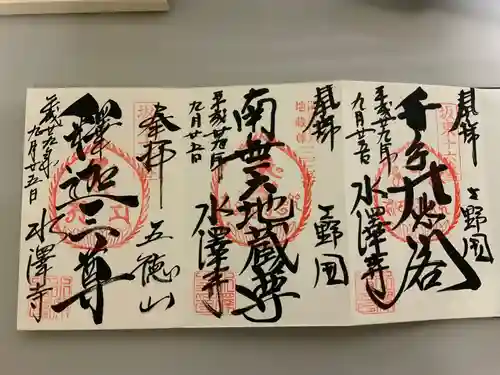 奉拝
上野国
坂東十六
千手大悲閣
平成廿九年
九月廿五日
水澤寺
奉拝
上野国
南無六地蔵尊
平成廿九年
九月廿五日
水澤寺
奉拝
五徳山
釋迦三尊
平成廿九年
九月廿五日
水澤寺